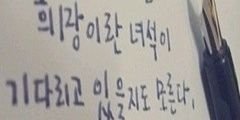 희망이란 녀석이
기다리고 있을지도 모른다.